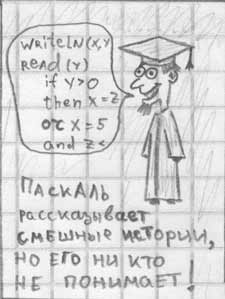 WRITELN(X,Y
READ(Y)
if Y>0
then X=Z
or X=5
and Z<
ПАСКАЛЬ
рассказывает
СМЕШНЫЕ ИСТОРИИ,
НО ЕГО НИ КТО
НЕ ПОНИМАЕТ!